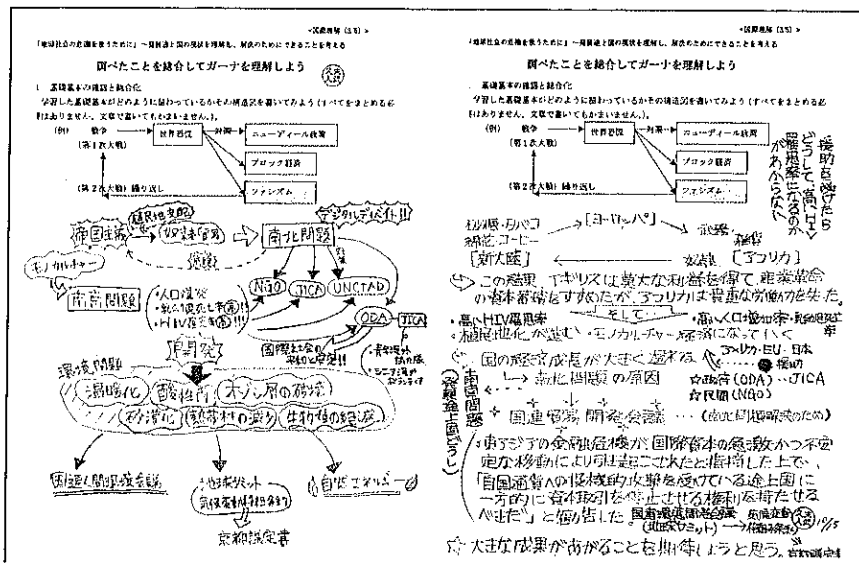 <国際理解（3/5）>
「地球社会の危機を救うために」～発展途上国の現状を理解し、解決のためにできることを考える
調べたことを総合してガーナを理解しよう
1 基礎基本の確認と総合化
学習した基礎基本がどのように関わっているかその構造図を書いてみよう(すべてをまとめる必
要はありません。文章で書いてもかまいません。)。
(例) 戦争 世界恐慌 対策 ニューディール政策
(第1次大戦)
ブロック経済
(第2次大戦) 繰り返し ファシズム
デジタルデバイド!!
植民地支配
帝国主義 奴隷貿易 南北問題
モノカルチャー
南南問題
NGO JICA UNCTAD
・人口爆発
ODA JICA
開発
環境問題
温暖化 酸性雨 オゾン層の破壊
砂漠化 熱帯林の減少 生物種の絶滅
国連人間環境会議
地球サミット
自然エネルギー
京都議定書
<国際理解（3/5）>
「地球社会の危機を救うために」～発展途上国の現状を理解し、解決のためにできることを考える
調べたことを総合してガーナを理解しよう
基礎基本の確認と総合化
学習した基礎基本がどのように関わっているかその構造図を書いてみよう(すべてをまとめる必
要はありません。文章で書いてもかまいません。)。
(例) 戦争 世界恐慌 対策 ニューディール政策
(第1次大戦)
ブロック経済
(第2次大戦) 繰り返し ファシズム
・援助を受けたら
どうして、高いHIV
罹患率になるのか
がわからない
[ヨーロッパ]
綿花・コーヒー 武器
[新大陸] 奴隷 [アフリカ]
この結果、イギリスは莫大な利益を得て、産業革命
の資本蓄積をすすめたが、アフリカは貴重な労働力を失った。
・高いHIV罹患率 そして ・高い人口増加率・乳幼児死亡率
・植民地化が進む・モノカルチャー経済になっていく
国の経済成長が大きく遅れる アメリカ・EU・日本
援助
南北問題の原因 ☆政府(ODA)…JICA
☆民間(NGO)
南南問題
(発展途上国どうし)
国連貿易開発会議 (南北問題解決のため)
・東アジアの金融危機が国際資本の急激かつ不安
定な移動により引き起こされたと指摘した上で、
「自国通貨への投機的攻撃を受けている途上国に
一方的に資本取引を停止させる権利を持たせる
べきだ」と勧告した。
(地球サミット)
10/15
☆大きな成果があがることを期待しようと思う。京都議定書